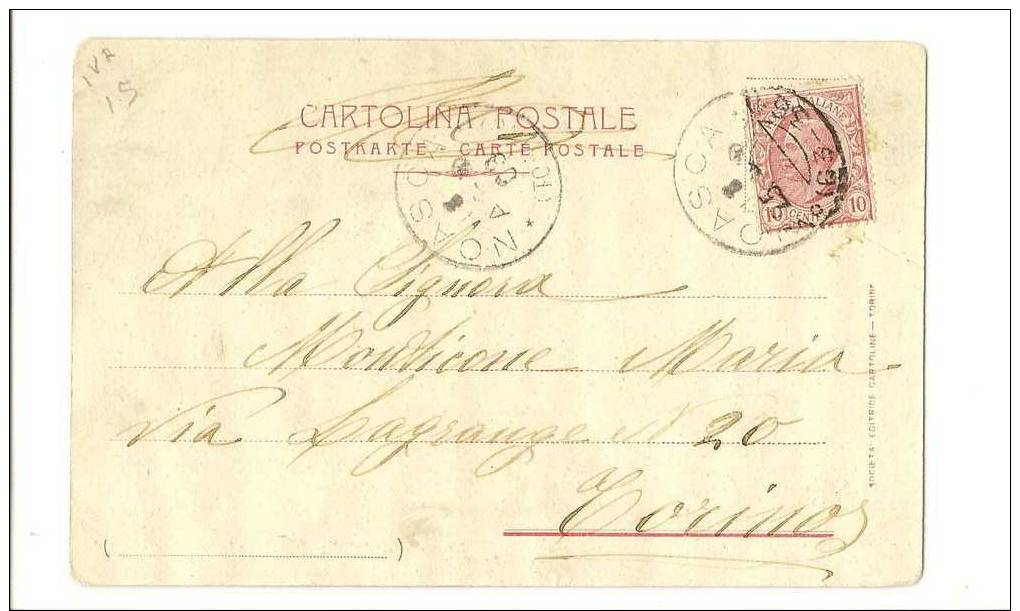 IVR
15
CARTOLINA POSTALE
POSTKARTE - CARTE POSTALE
NOASCA
NOASCA
10 10
CENT
Alla Signora
Mondicone Maria
Via Lagrange N 20
Torino
SOCIETÀ EDITRICE CARTOLINE — TORINO
( )